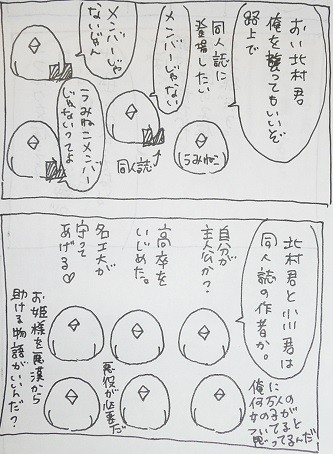 おい北村君
俺を襲ってもいいぞ
路上で
同人誌に
登場したい
メンバーじゃない
メンバーじゃ
ないじゃん
うみねこ
同人誌
うみねこメンバー
じゃないってよ
北村君と小川君は
同人誌の作者か。
自分が
主人公か?
高卒を
いじめた。
名工大が
守って
あげる♡
悪役が必要だ
お姫様を悪漢から
助ける物語がいいんだ?
俺に
何万人の
女の子が
ついてると
思ってるんだ